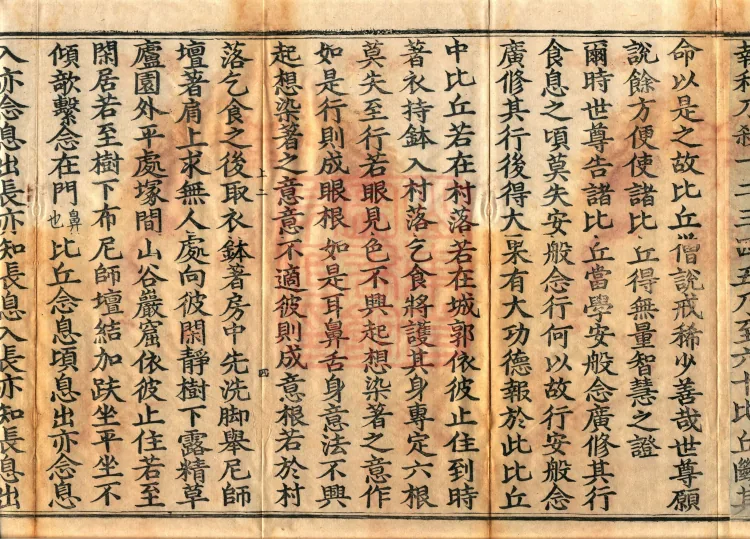 一二三四五乃至六十比丘
命以是之故比丘僧說戒稀少善哉世尊願
說餘方便使諸比丘得無量智慧之證
爾時世尊告諸比丘當學安般念廣修其行
食息之頃莫失安般念行何以故行安般念
廣修其行後得大果有大功德報於此比丘
中比丘若在村落若在城郭依彼止住到時
著衣持鉢入村落乞食將護其身專定六根
莫失至行若眼見色不興起想染著之意作
如是行則成眼根如是耳鼻舌身意法不興
起想染著之意意不適彼則成意根若於村
上二 四
落乞食之後取衣鉢著房中先洗脚舉尼師
壇著肩上求無人處向彼閑靜樹下露精草
廬園外平處塚間山谷巖窟依彼止住若至
閑居若至樹下布尼師壇結加趺坐平坐不
傾欹繫念在門鼻也比丘念息頃息出亦念息
入亦念息出長亦知長息入長亦知長息出